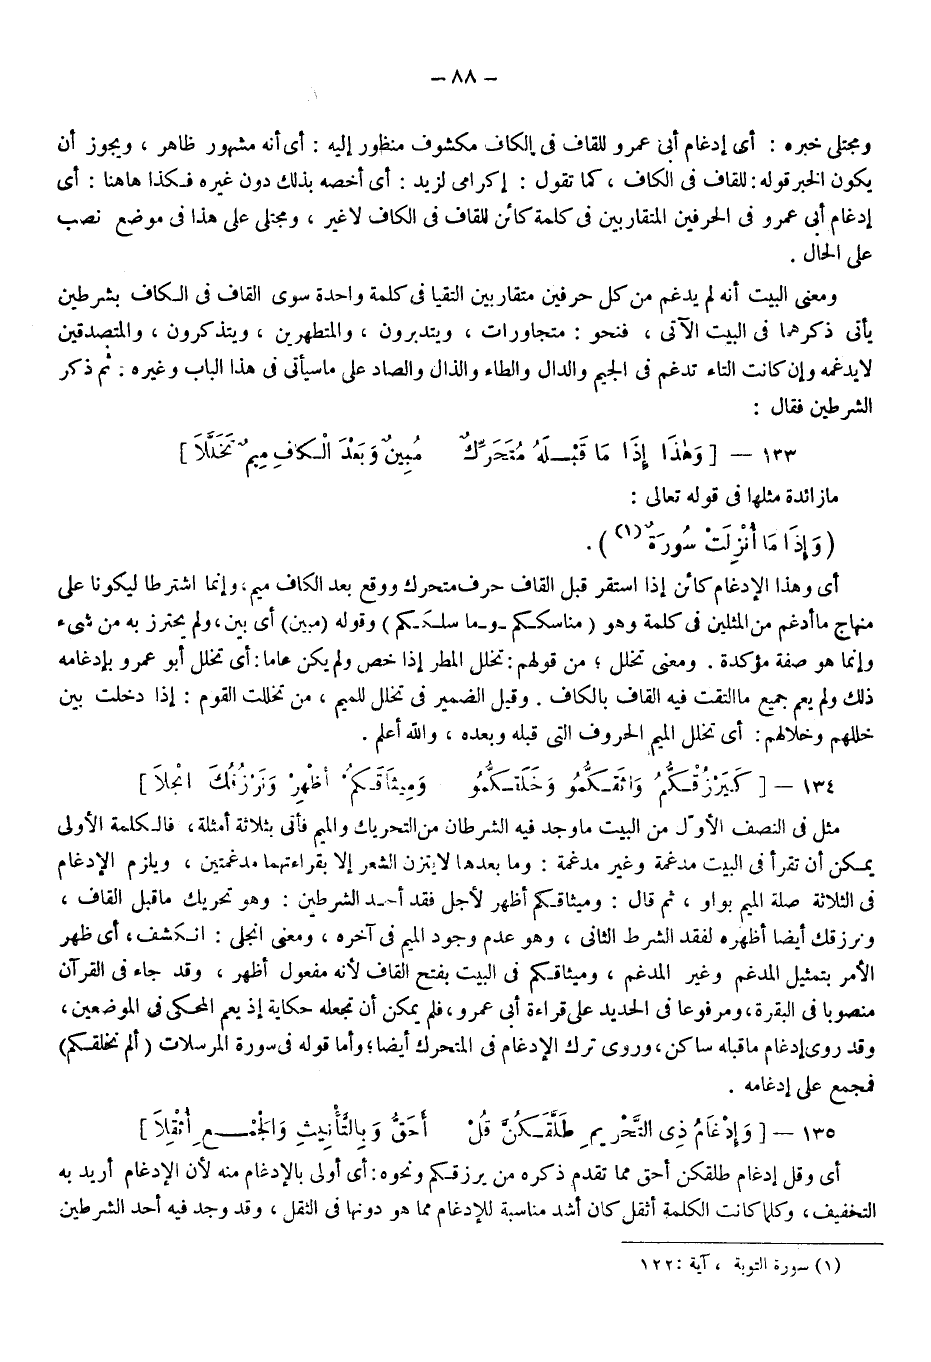 – ٨٨ –
ومجتلى خبره : أى إدغام أبى عمرو للقاف فى الكاف مكشوف منظور إليه : أى أنه مشهور ظاهر ، ويجوز أن
يكون الخبر قوله : للقاف فى الكاف ، كما تقول : إكرامى لزيد : أى أخصه بذلك دون غيره فكذا هاهنا : أى
إدغام أبى عمرو فى الحرفين المتقاربين فى كلمة كائن للقاف فى الكاف لاغير ، ومجتلى على هذا فى موضع نصب
على الحال .
ومعنى البيت أنه لم يدغم من كل حرفين متقاربين التقيا فى كلمة واحدة سوى القاف فى الكاف بشرطين
يأتى ذكرهما فى البيت الآتى ، فنحو : متجاورات ، ويتدبرون ، والمتطهرين ، ويتذكرون ، والمتصدقين
لايدغمه وإن كانت التاء تدغم فى الجيم والدال والطاء والذال والصاد على ماسيأتى فى هذا الباب وغيره . ثم ذكر
الشرطين فقال :
١٣٣ – [ وَهٰذَا إِذَا مَا قَبْـلَهُ مُتَحَرِّكٌ مُبِينٌ وَبَعْدَ الْـكافِ مِيمٌ تَخَلَّلَا ]
مازائدة مثلها فى قوله تعالى :
( وَإِذَا مَا أُنْزِلَتْ سُورَةٌ (١) ) .
أى وهذا الإدغام كائن إذا استقر قبل القاف حرف متحرك ووقع بعد الكاف ميم ، وإنما اشترطا ليكونا على
منهاج ماأدغم من المثلين فى كلمة وهو ( مناسككم ـ و ـ ما سلككم ) وقوله (مبين) أى بين ، ولم يحترز به من شىء
وإنما هو صفة مؤكدة . ومعنى تخلل ؛ من قولهم : تخلل المطر إذا خص ولم يكن عاما : أى تخلل أبو عمرو بإدغامه
ذلك ولم يعم جميع ماالتقت فيه القاف بالكاف . وقيل الضمير فى تخلل للميم ، من تخللت القوم : إذا دخلت بين
خللهم وخلالهم : أى تخلل الميم الحروف التى قبله وبعده ، والله أعلم .
١٣٤ – [ كَيَرْزُقْـكُّمُ وَاثَقـكُّمُو وَخَلَقـكُّمُو وَمِيثَاقَـكُمْ أظْهِرْ وَنَرْزُقُكَ انْجَلاَ ]
مثل فى النصف الأوّل من البيت ماوجد فيه الشرطان من التحريك والميم فأتى بثلاثة أمثلة ، فالكلمة الأولى
يمكن أن تقرأ فى البيت مدغمة وغير مدغمة : وما بعدها لايتزن الشعر إلا بقراءتهما مدغمتين ، ويلزم الإدغام
فى الثلاثة صلة الميم بواو ، ثم قال : وميثاقكم أظهر لأجل فقد أحد الشرطين : وهو تحريك ماقبل القاف ،
ونرزقك أيضا أظهره لفقد الشرط الثانى ، وهو عدم وجود الميم فى آخره ، ومعنى انجلى : انكشف ، أى ظهر
الأمر بتمثيل المدغم وغير المدغم ، وميثاقكم فى البيت بفتح القاف لأنه مفعول أظهر ، وقد جاء فى القرآن
منصوبا فى البقرة ، ومرفوعا فى الحديد على قراءة أبى عمرو ، فلم يمكن أن تجعله حكاية إذ يعم المحكى فى الموضعين ،
وقد روى إدغام ماقبله ساكن ، وروى ترك الإدغام فى المتحرك أيضا ؛ وأما قوله فى سورة المرسلات ( ألم نخلقكم)
فمجمع على إدغامه .
١٣٥ – [ وَإِدْغَامُ ذِى التَّحْرِيمِ طَلَّقَـكُنَّ قُلْ أَحَقُّ وَبِالتَّأْنِيثِ وَالْجَمْـعِ أُثْقِلاَ ]
أى وقل إدغام طلقكن أحق مما تقدم ذكره من يرزقكم ونحوه : أى أولى بالإدغام منه لأن الإدغام أريد به
التخفيف ، وكلما كانت الكلمة أثقل كان أشد مناسبة للإدغام مما هو دونها فى الثقل ، وقد وجد فيه أحد الشرطين
(١) سورة التوبة ، آية : ١٢٢